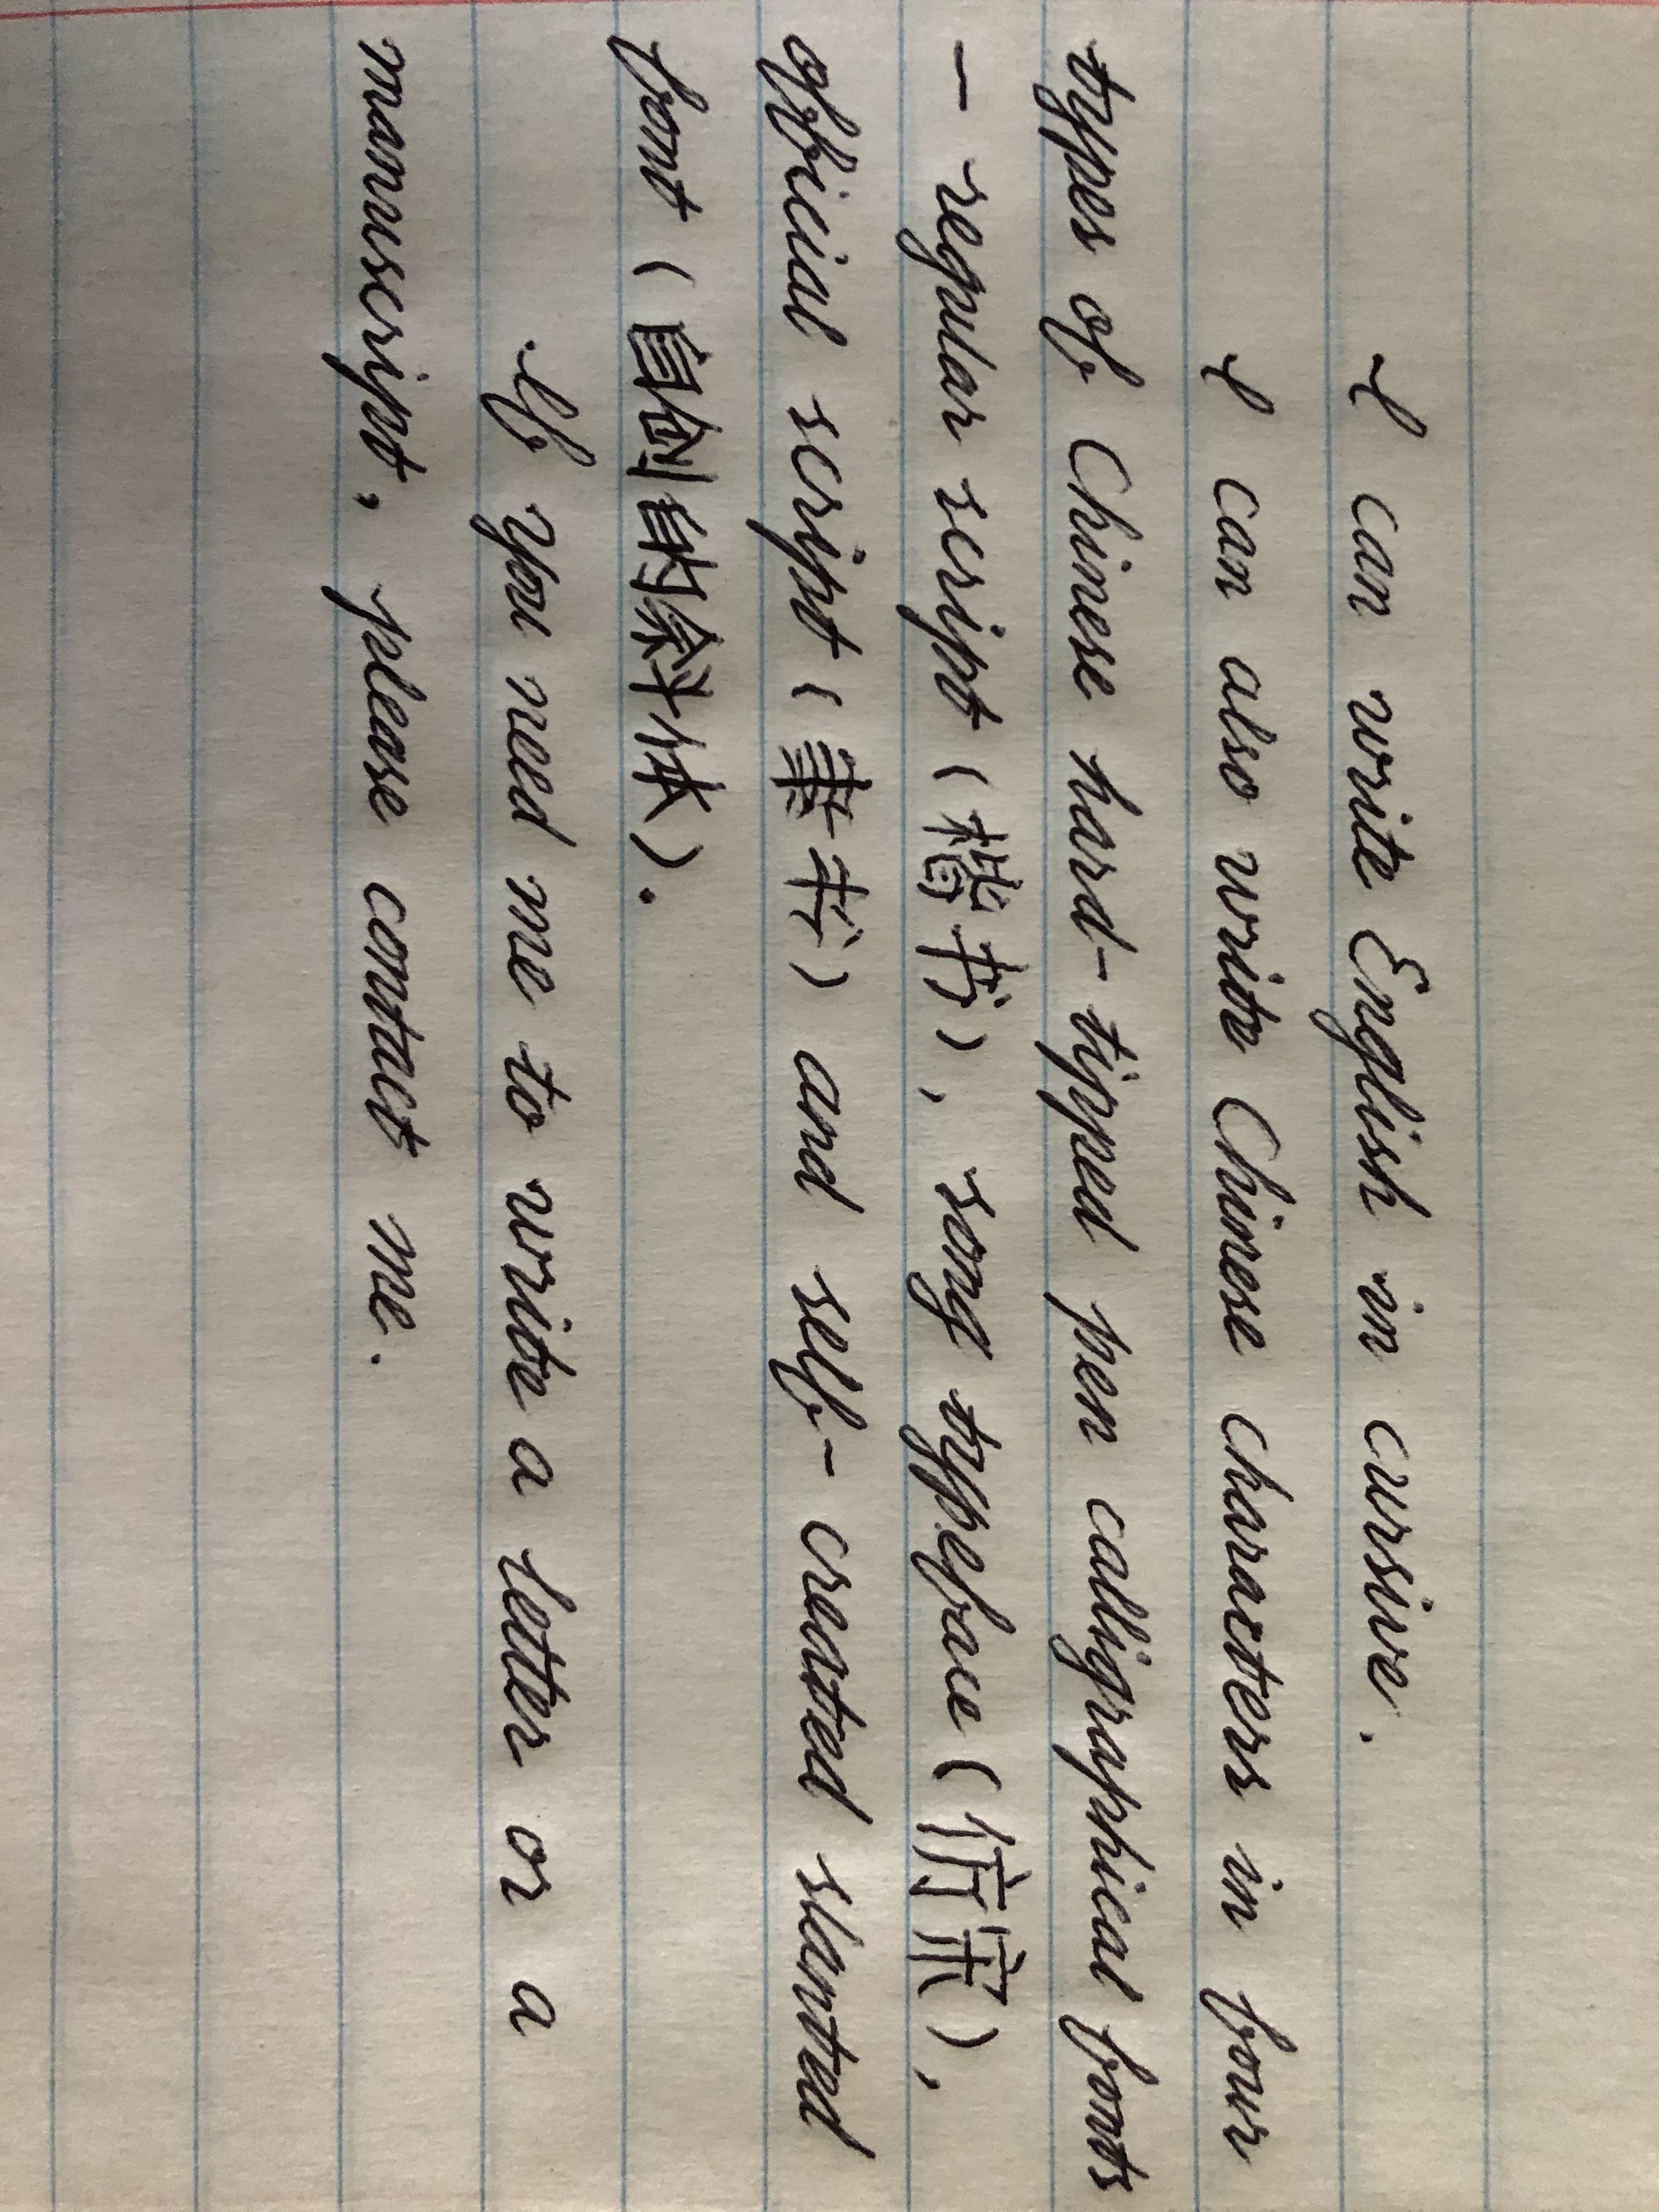 I can write English in cursive.
I can also write Chinese characters in four
types of Chinese hard-tipped pen calligraphical fonts
— regular script (楷书), song typeface (仿宋),
official script (隶书) and self-created slanted
font (自创的斜体).
If you need me to write a letter or a
manuscript, please contact me.